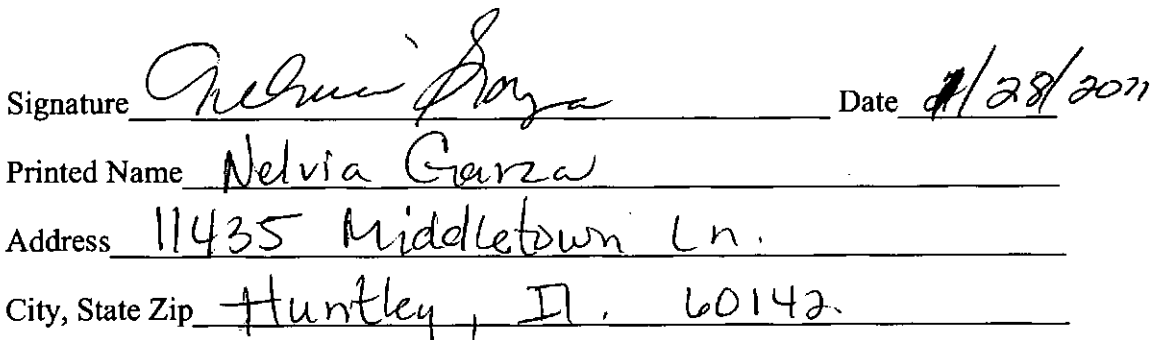 Signature Nelvia Garza Date 1/28/2011
Printed Name Nelvia Garza
Address 11435 Middletown Ln.
City, State Zip Huntley, Il. 60142.